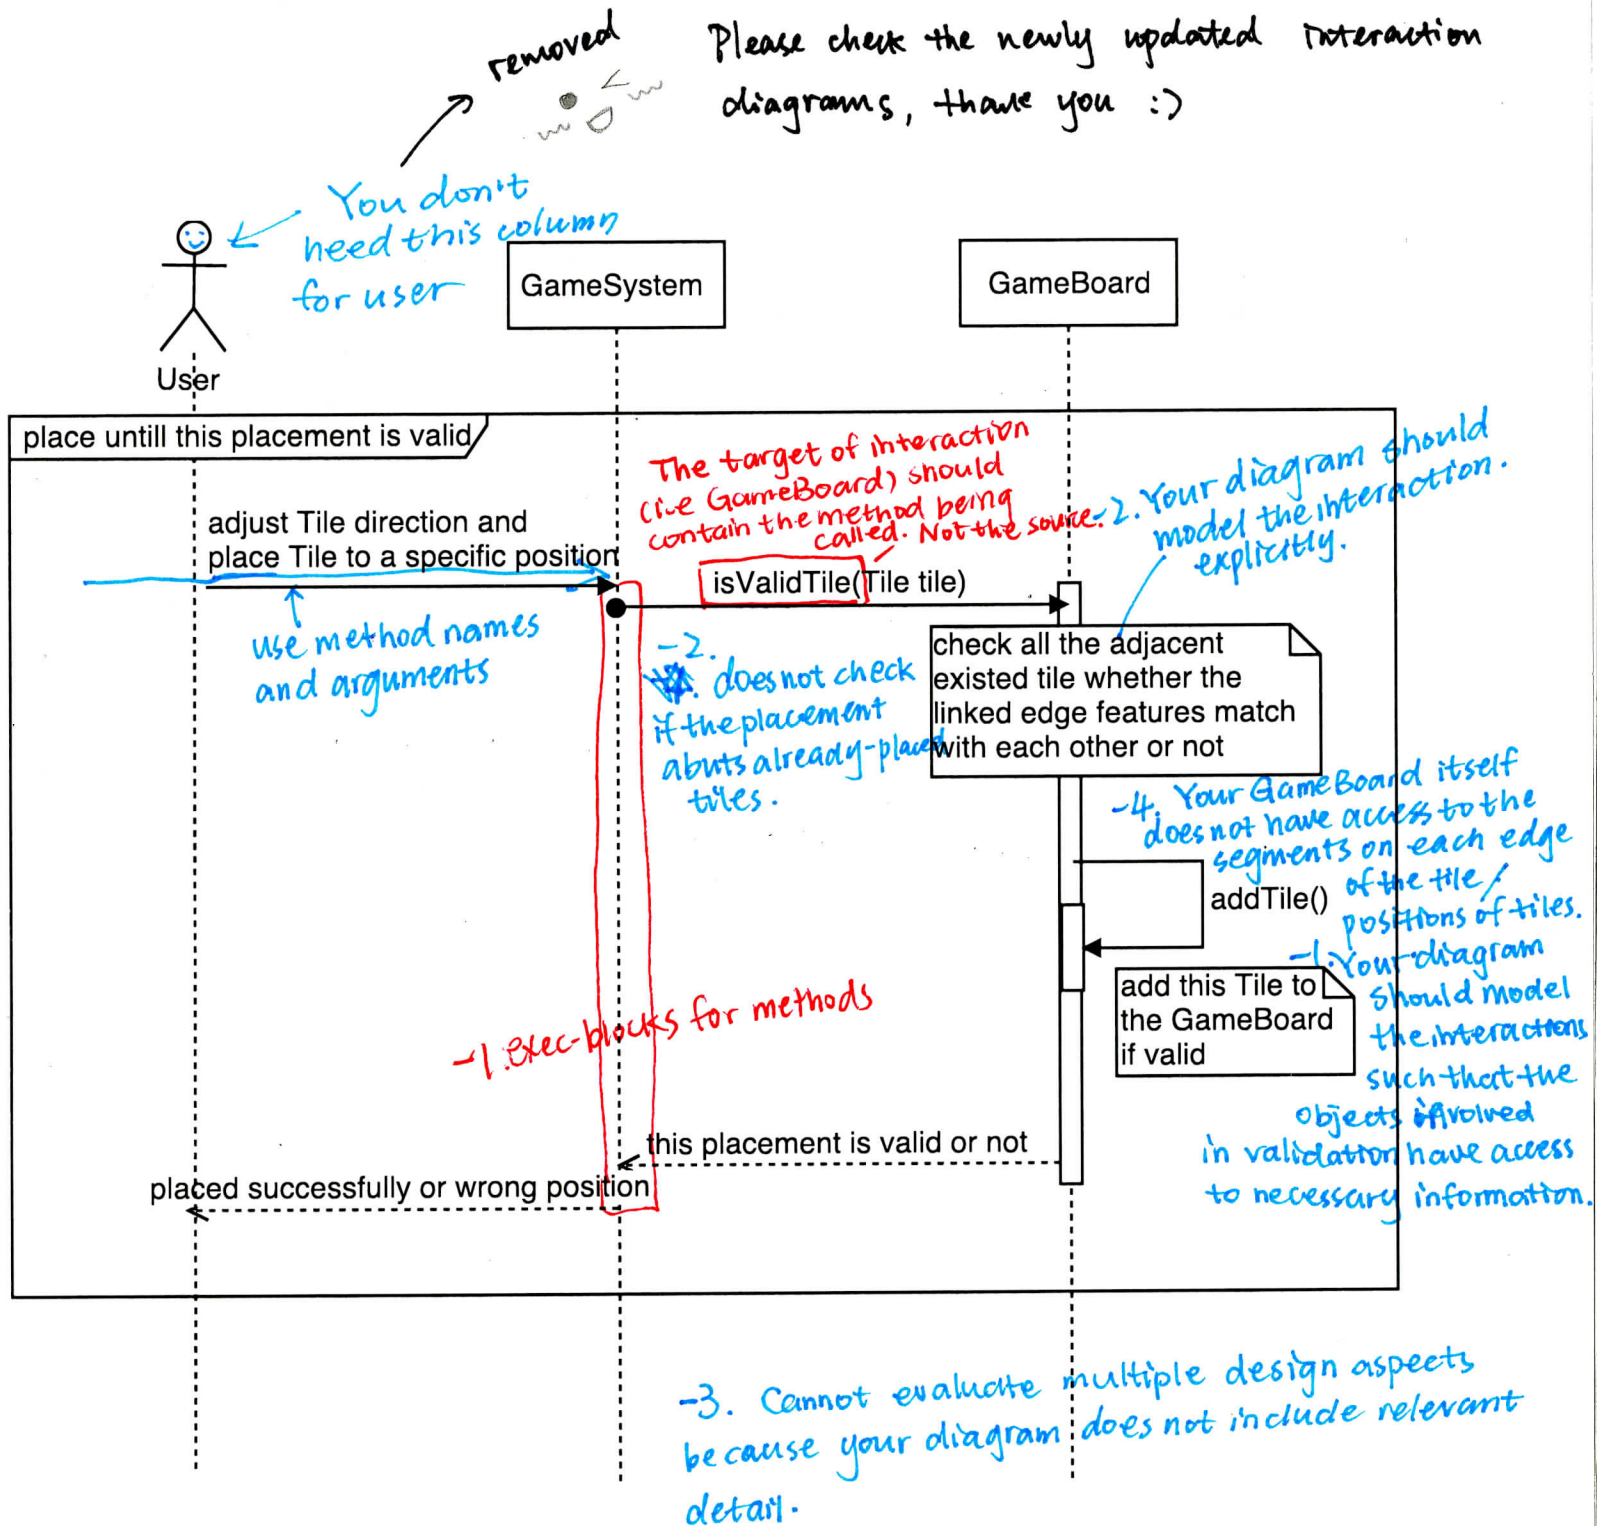 removed
Please check the newly updated interaction
diagrams, thank you :)
You don't
need this column
for user
GameSystem
GameBoard
User
place untill this placement is valid
The target of interaction
(i.e GameBoard) should
contain the method being
called. Not the source.
-2. Your diagram should
model the interaction
explicitly.
adjust Tile direction and
place Tile to a specific position
isValidTile(Tile tile)
use method names
and arguments
-2.
does not check
if the placement
abuts already-placed
tiles.
check all the adjacent
existed tile whether the
linked edge features match
with each other or not
-4. Your GameBoard itself
does not have access to the
segments on each edge
of the tile/
positions of tiles.
addTile()
-1. Your diagram
should model
the interactions
such that the
objects involved
in validation have access
to necessary information.
add this Tile to
the GameBoard
if valid
-1. exec-blocks for methods
this placement is valid or not
placed successfully or wrong position
-3. Cannot evaluate multiple design aspects
because your diagram does not include relevant
detail.